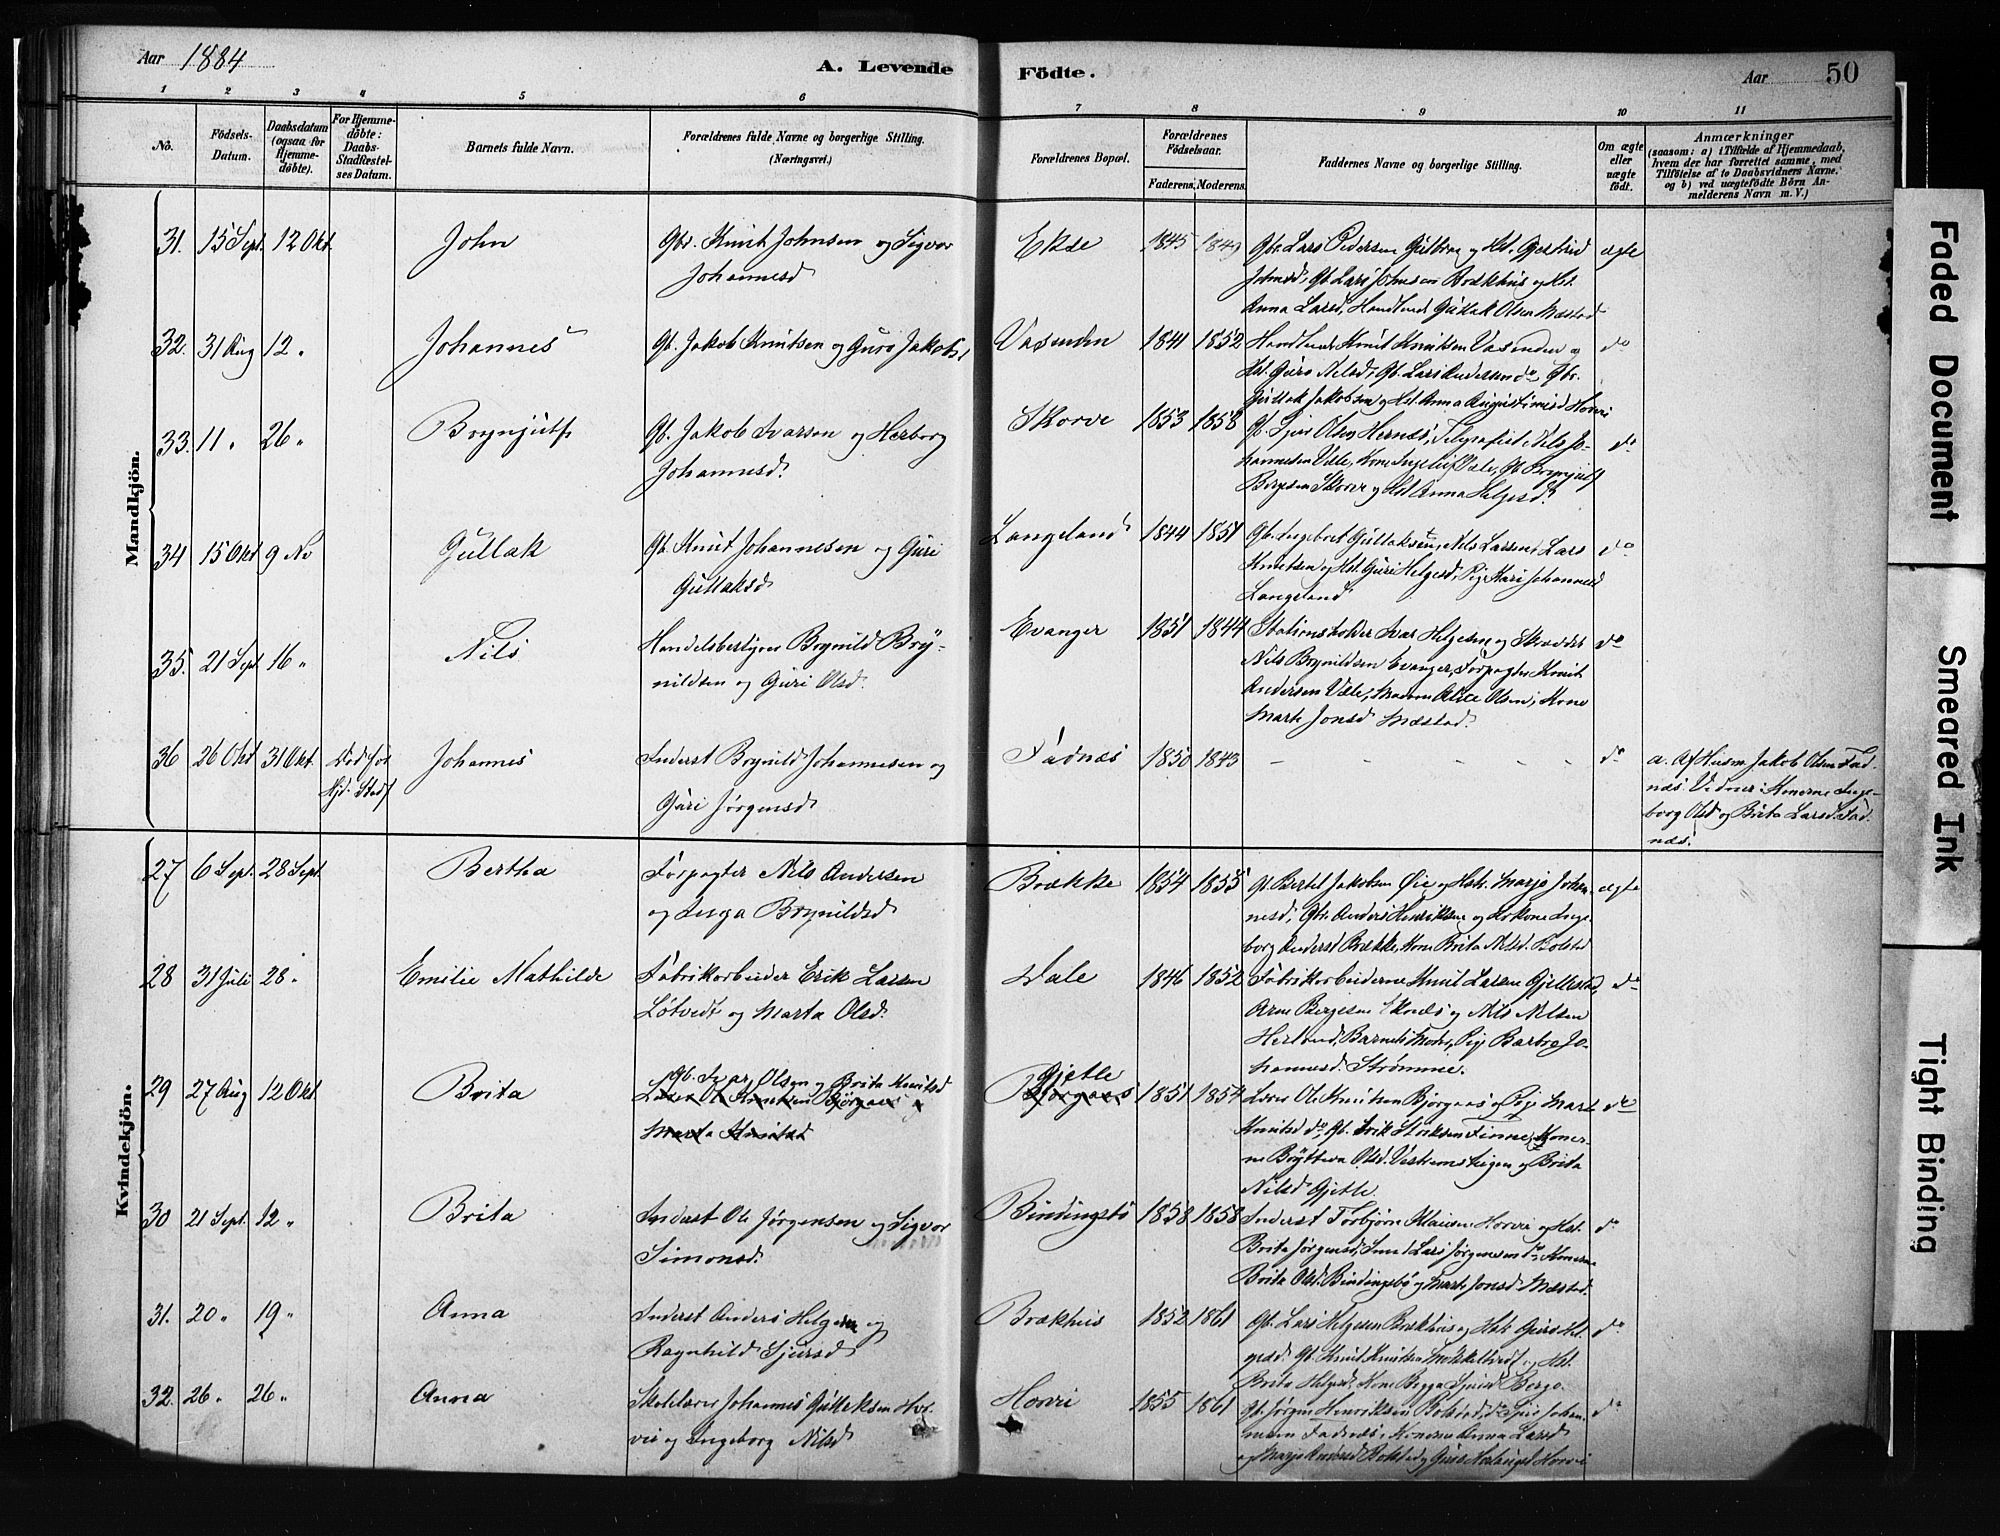 Aar 1884
A. Levende
Födte.
Aar 50
1 2 3 4 5 6 7 8 9 10 11
No.
Födsels-
Datum.
Daabsdatum
(ogsaa for
Hjemme-
döbte).
For Hjemme-
döbte:
Daabs-
Stadfæstel-
ses Datum.
Barnets fulde Navn.
Forældrenes fulde Navne og borgerlige Stilling.
(Næringsvei.)
Forældrenes Bopæl.
Forældrenes
Födselsaar.
Faderens. Moderens.
Faddernes Navne og borgerlige Stilling.
Om ægte
eller
uægte
födt.
Anmærkninger
(saasom: a) i Tilfælde af Hjemmedaab,
hvem der har forrettet samme, med
Tilföielse af to Daabsvidners Navne,
og b) ved uægtefödte Börn An-
melderens Navn m. V.)
Mandkjön.
31. 15 Sept. 12 Okt. John
Gbr. Knut Johnsen og Sigvor
Johannesd
Ekse 1845 1849
Gbr. Lars Pedersen Gulbra og Hst. Gjertrud
Johnsd, Gb. Lars Johnsen Brækhus og Hst.
Anna Larsd, Handlende Gullak Olsen Mæstad
ægte
32. 31 Aug 12 " Johannes
Gb. Jakob Knutsen og Guro Jakobsd
Vasenden 1841 1852
Handlende Knut Knutsen Vasenden og
Hst. Guro Nilsd, Gb. Lars Andersen do, Gbr.
Gullak Jakobsen og Hst. Anna Augustinusd Horvei
do
33. 11 " 26 " Brynjulf
Gb. Jakob Ivarsen og Herborg
Johannesd.
Skorve 1853 1858
Gb. Sjur Olsen Hernæs, Telegrafist Nils Jo-
hannesen Væle, Kone Ingelei Væle, Gb. Brynjulf
Børgesen Skorve og Hst. Anna Helgesd.
do
34 15 Okt 9 No Gullak
Gb. Knut Johannesen og Guri
Gullaksd
Langeland 1844 1851
Gb. Ingebret Gullaksen, Nils Larsen, Lars
Knutsen og Hst. Guri Helgesd, Pige Kari Johannesd
Langeland
do
35. 21 Sept 16 " Nils
Handelsbestyrer Brynild Bry-
nildsen og Guri Olsd.
Evanger 1851 1844
Stationsholder Ivar Helgesen og Skrædder
Nils Brynildsen Evanger, Forpagter Knut
Andersen Væle, Madam Alice Olsen, Kone
Marta Jonsd Mæstad.
do
36 26 Okt 31 Okt. Død før
Hj. Stadf
Johannes
Inderst Brynild Johannesen og
Guri Jørgensd
Fadnæs 1850 1843
- - - - - -
do
a. Af Husm. Jakob Olsen Fad-
næs. Vidner: Konerne Inge-
borg Olsd og Brita Larsd Fad-
næs.
Kvindekjön.
27 6 Sept. 28 Sept. Bertha
Forpagter Nils Andersen
og Inga Brynildsd
Brække 1854 1855
Gb. Bertel Jakobsen Øie og Hstr. Marjo Johan-
nesd, Gbr. Anders Henriksen og Kone Inge-
borg Andersd Brække, Kone Brita Nilsd. Bolstad
ægte
28 31 Juli 28 " Emilie Mathilde
Fabrikarbeider Erik Larsen
Løtvedt og Marta Olsd.
Dale 1846 1852
Fabrikarbeiderne Knut Larsen Gjellestad,
Arne Bergesen Eknæs og Nils Nilsen
Herland, Barnets Moder, Pige Barbro Jo-
hannesd. Strømme.
do
29 27 Aug 12 Okt Brita
Gb. Ivar Olsen og Brita Knutsd
Læser Ole Knutsen Bjørgaas og
Marta Knutsd
Gjelle
Bjørgaas 1851 1854
Læser Ole Knutsen Bjørgaas og Pige Marta
Knutsd do, Gb. Erik Eriksen Finne, Koner-
ne Brytteva Olsd. Vestrem og Brita
Nilsd Gjelle
do
30 21 Sept. 12 " Brita
Inderst Ole Jørgensen og Sigvor
Simonsd.
Bindingsbø 1858 1858
Inderst Torbjørn Klausen Horvei og Hst.
Brita Jørgensd, Lars Jørgensen do, Konerne
Brita Olsd. Bindingsbø og Marta Jonsd. Mæstad.
do
31. 20 " 19 " Anna
Inderst Anders Helgesen og
Ragnhild Sjursd
Brækhus 1852 1861
Gb. Lars Helgesen Brækhus og Hst. Guro Hel-
gesd. Gb. Knut Knutsen og Hst.
Brita Helgesd, Kone Begga Sjursd Berge.
do
32. 26 " 26 " Anna
Skolelærer Johannes Gullaksen Hor-
vei og Ingeborg Nilsd
Horvei 1855 1861
Gb. Jørgen Henriksen Bolstad, do Sjur Johan-
nesen Fadnæs, Konerne Anna Larsd
og Marjo Andersd Bolstad og Guro Horvei
do
Faded Document
Smeared Ink
Tight Binding